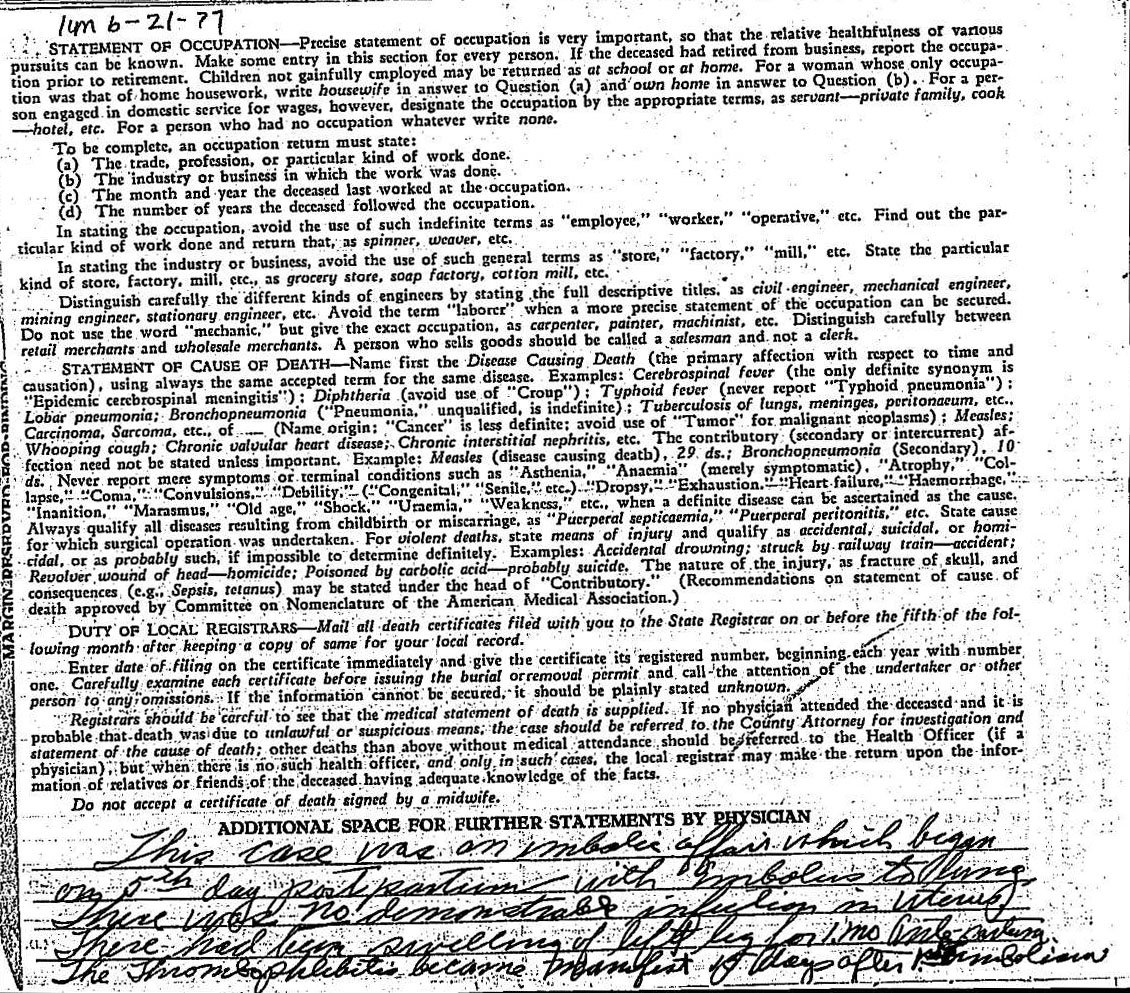 6-21-77
STATEMENT OF OCCUPATION—Precise statement of occupation is very important, so that the relative healthfulness of various
pursuits can be known. Make some entry in this section for every person. If the deceased had retired from business, report the occupa-
tion prior to retirement. Children not gainfully employed may be returned as at school or at home. For a woman whose only occupa-
tion was that of home housework, write housewife in answer to Question (a) and own home in answer to Question (b). For a per-
son engaged in domestic service for wages, however, designate the occupation by the appropriate terms, as servant—private family, cook
—hotel, etc. For a person who had no occupation whatever write none.
To be complete, an occupation return must state:
(a) The trade, profession, or particular kind of work done.
(b) The industry or business in which the work was done.
(c) The month and year the deceased last worked at the occupation.
(d) The number of years the deceased followed the occupation.
In stating the occupation, avoid the use of such indefinite terms as "employee," "worker," "operative," etc. Find out the par-
ticular kind of work done and return that, as spinner, weaver, etc.
In stating the industry or business, avoid the use of such general terms as "store," "factory," "mill," etc. State the particular
kind of store, factory, mill, etc., as grocery store, soap factory, cotton mill, etc.
Distinguish carefully the different kinds of engineers by stating the full descriptive titles, as civil engineer, mechanical engineer,
mining engineer, stationary engineer, etc. Avoid the term "laborer" when a more precise statement of the occupation can be secured.
Do not use the word "mechanic," but give the exact occupation, as carpenter, painter, machinist, etc. Distinguish carefully between
retail merchants and wholesale merchants. A person who sells goods should be called a salesman and not a clerk.
STATEMENT OF CAUSE OF DEATH—Name first the Disease Causing Death (the primary affection with respect to time and
causation), using always the same accepted term for the same disease. Examples: Cerebrospinal fever (the only definite synonym is
"Epidemic cerebrospinal meningitis"); Diphtheria (avoid use of "Croup"); Typhoid fever (never report "Typhoid pneumonia");
Lobar pneumonia; Bronchopneumonia ("Pneumonia," unqualified, is indefinite); Tuberculosis of lungs, meninges, peritonaeum, etc.,
Carcinoma, Sarcoma, etc., of —— (Name origin: "Cancer" is less definite; avoid use of "Tumor" for malignant neoplasms); Measles;
Whooping cough; Chronic valvular heart disease; Chronic interstitial nephritis, etc. The contributory (secondary or intercurrent) af-
fection need not be stated unless important. Example: Measles (disease causing death), 29 ds.; Bronchopneumonia (Secondary), 10
ds. Never report mere symptoms or terminal conditions such as "Asthenia," "Anaemia" (merely symptomatic), "Atrophy," "Col-
lapse," "Coma," "Convulsions," "Debility," ("Congenital," "Senile," etc.) "Dropsy," "Exhaustion," "Heart failure," "Haemorrhage,"
"Inanition," "Marasmus," "Old age," "Shock," "Uraemia," "Weakness," etc., when a definite disease can be ascertained as the cause.
Always qualify all diseases resulting from childbirth or miscarriage, as "Puerperal septicaemia," "Puerperal peritonitis," etc. State cause
for which surgical operation was undertaken. For violent deaths, state means of injury and qualify as accidental, suicidal, or homi-
cidal, or as probably such, if impossible to determine definitely. Examples: Accidental drowning; struck by railway train—accident;
Revolver wound of head—homicide; Poisoned by carbolic acid—probably suicide. The nature of the injury, as fracture of skull, and
consequences (e.g., Sepsis, tetanus) may be stated under the head of "Contributory." (Recommendations on statement of cause of
death approved by Committee on Nomenclature of the American Medical Association.)
DUTY OF LOCAL REGISTRARS—Mail all death certificates filed with you to the State Registrar on or before the fifth of the fol-
lowing month after keeping a copy of same for your local record.
Enter date of filing on the certificate immediately and give the certificate its registered number, beginning each year with number
one. Carefully examine each certificate before issuing the burial or removal permit and call the attention of the undertaker or other
person to any omissions. If the information cannot be secured, it should be plainly stated unknown.
Registrars should be careful to see that the medical statement of death is supplied. If no physician attended the deceased and it is
probable that death was due to unlawful or suspicious means, the case should be referred to the County Attorney for investigation and
statement of the cause of death; other deaths than above without medical attendance should be referred to the Health Officer (if a
physician), but when there is no such health officer, and only in such cases, the local registrar may make the return upon the infor-
mation of relatives or friends of the deceased having adequate knowledge of the facts.
Do not accept a certificate of death signed by a midwife.
ADDITIONAL SPACE FOR FURTHER STATEMENTS BY PHYSICIAN
This case was an imbolic affair which began
on 5th day post partum with Imbolus to lung
There was no demonstrable infection in uterus
There had been swelling of left leg for 1 mo
The Thrombophlebitis became manifest days after 1st imbolism
MARGIN RESERVED FOR BINDING